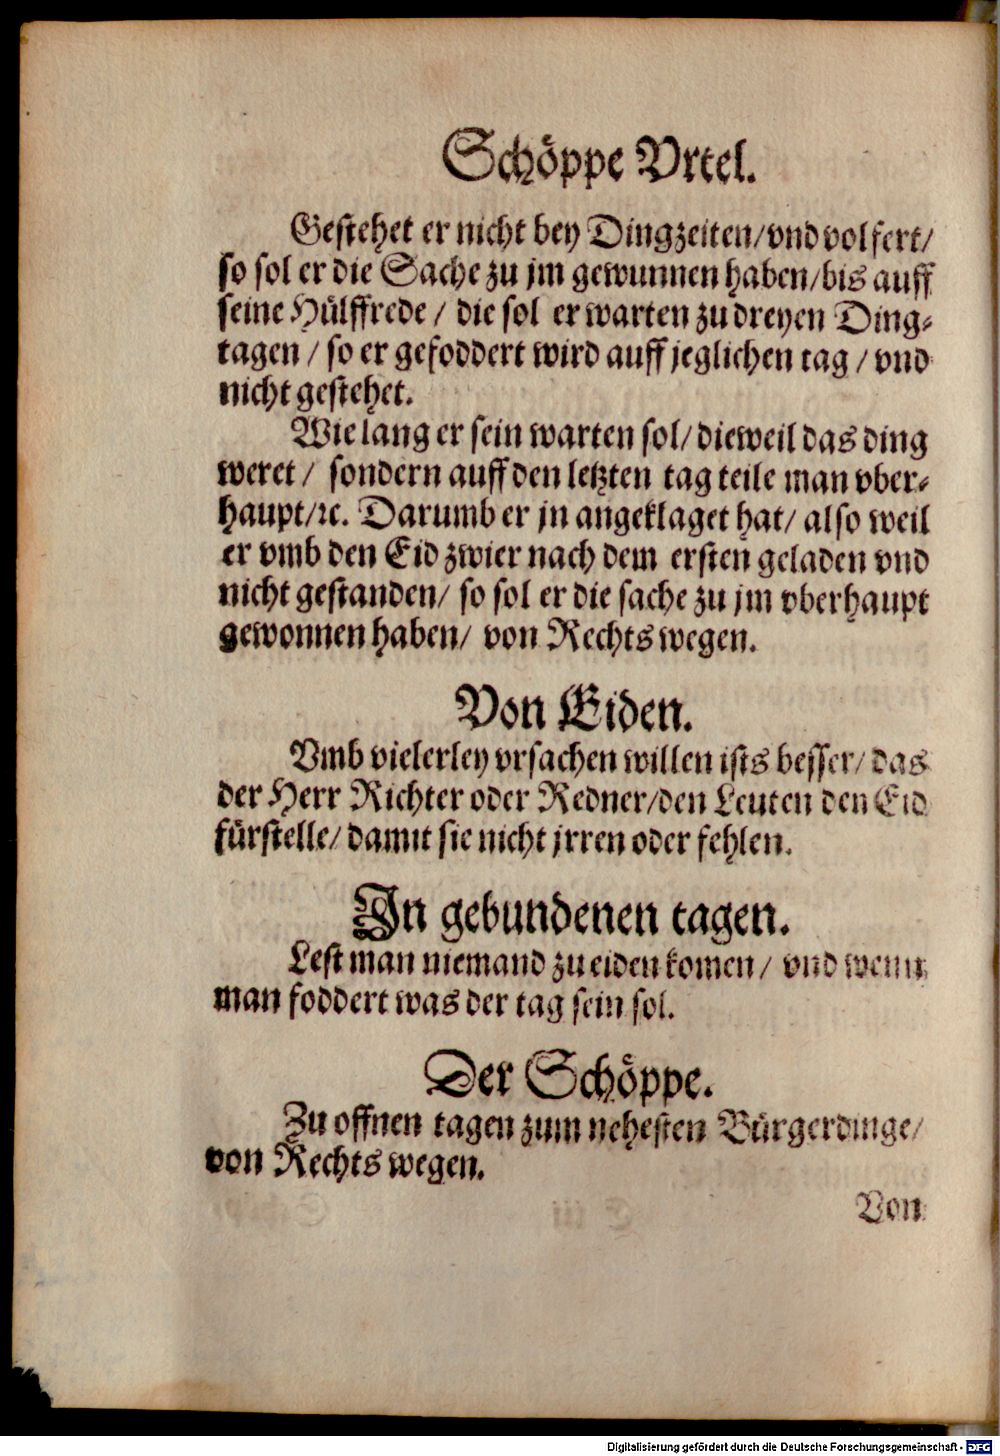 Schöppe Vrtel.
Gestehet er nicht bey Dingzeiten/vnd volfert/
so sol er die Sache zu jm gewunnen haben/bis auff
seine Hülffrede / die sol er warten zu dreyen Ding-
tagen / so er gefoddert wird auff jeglichen tag / vnd
nicht gestehet.
Wie lang er sein warten sol/ dieweil das ding
weret / sondern auff den letzten tag teile man vber-
haupt/ꝛc. Darumb er jn angeklaget hat/ also weil
er vmb den Eid zwier nach dem ersten geladen vnd
nicht gestanden/ so sol er die sache zu jm vberhaupt
gewonnen haben/ von Rechts wegen.
Von Eiden.
Vmb vielerley vrsachen willen ists besser/ das
der Herr Richter oder Redner/den Leuten den Eid
fürstelle/ damit sie nicht jrren oder fehlen.
In gebundenen tagen.
Lest man niemand zu eiden komen / vnd wenn
man foddert was der tag sein sol.
Der Schöppe.
Zu offnen tagen zum nehesten Bürgerdinge/
von Rechts wegen.
Von
Digitalisierung gefördert durch die Deutsche Forschungsgemeinschaft - DFG